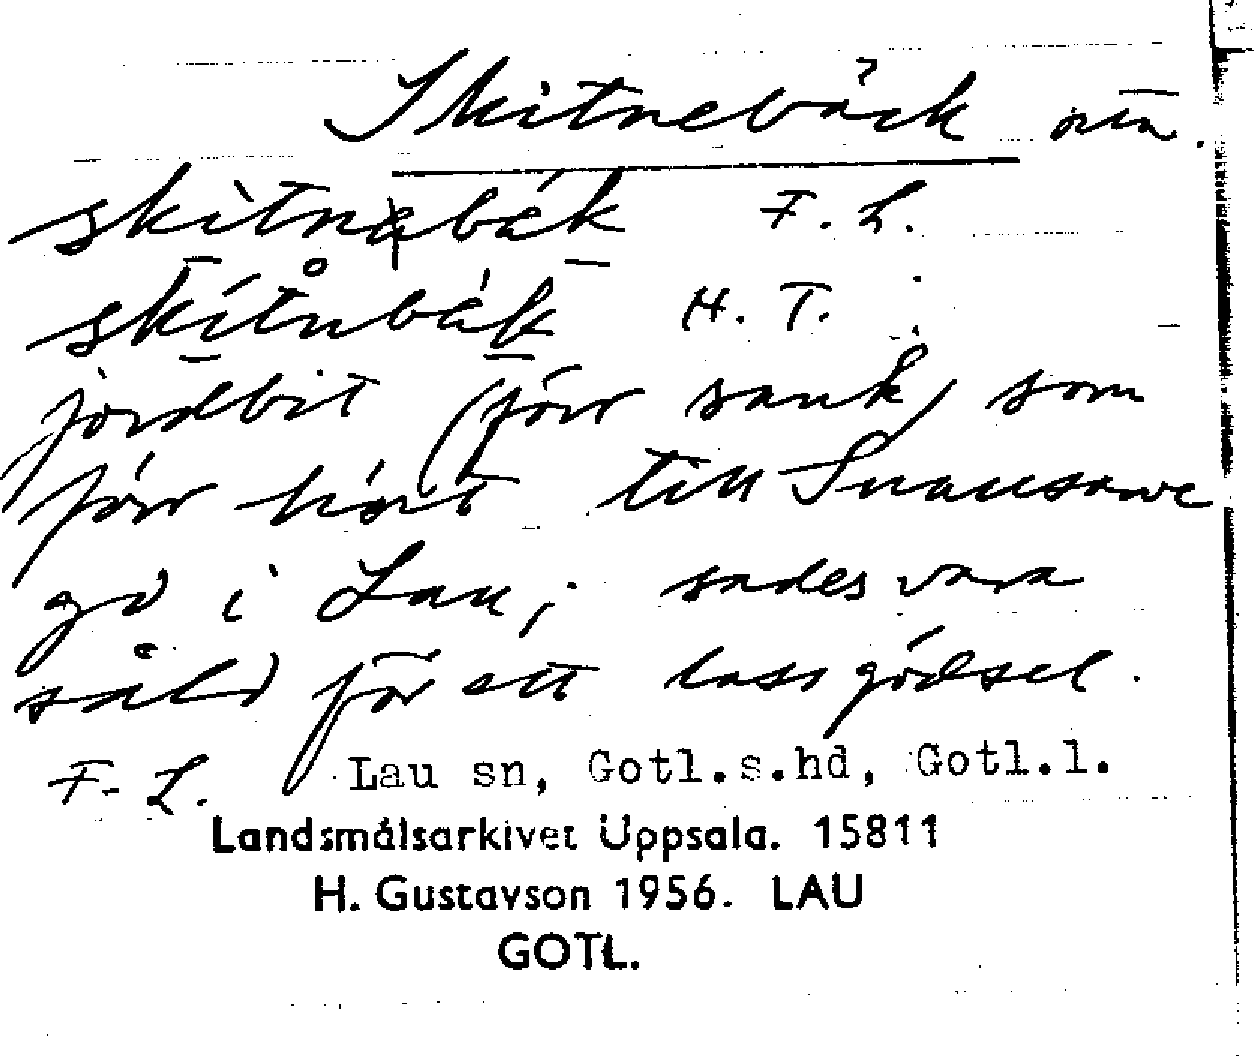 Skitnebäck
skìtnabák F. L.
skítn̥bák H. T.
jordbit (förr sank) som
förr hört till Snausarve
gd i Lau; sades vara
såld för ett lass gödsel.
F. L. Lau sn, Gotl.s.hd, Gotl.l.
Landsmålsarkivet Uppsala. 15811
H. Gustavson 1956. LAU
GOTL.